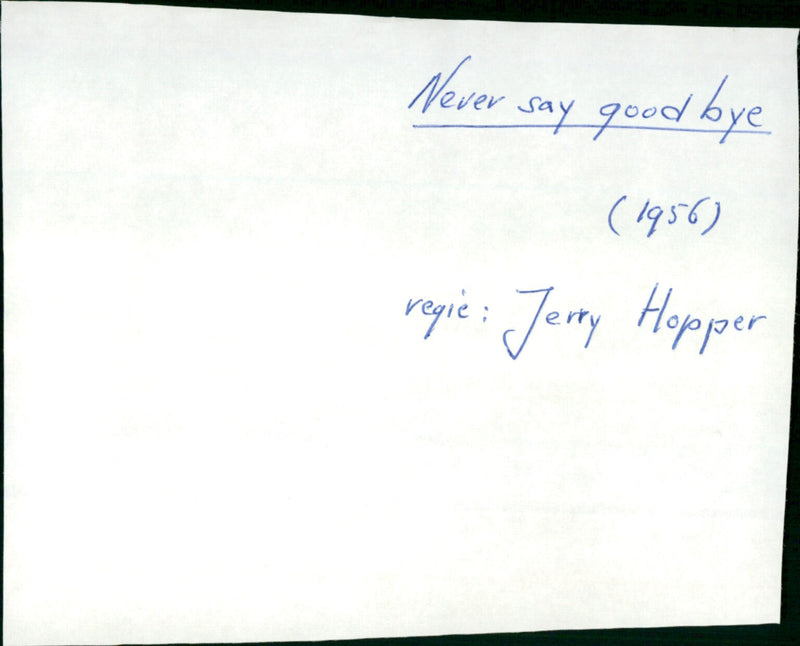 Never say good bye
(1956)
regie: Jerry Hopper